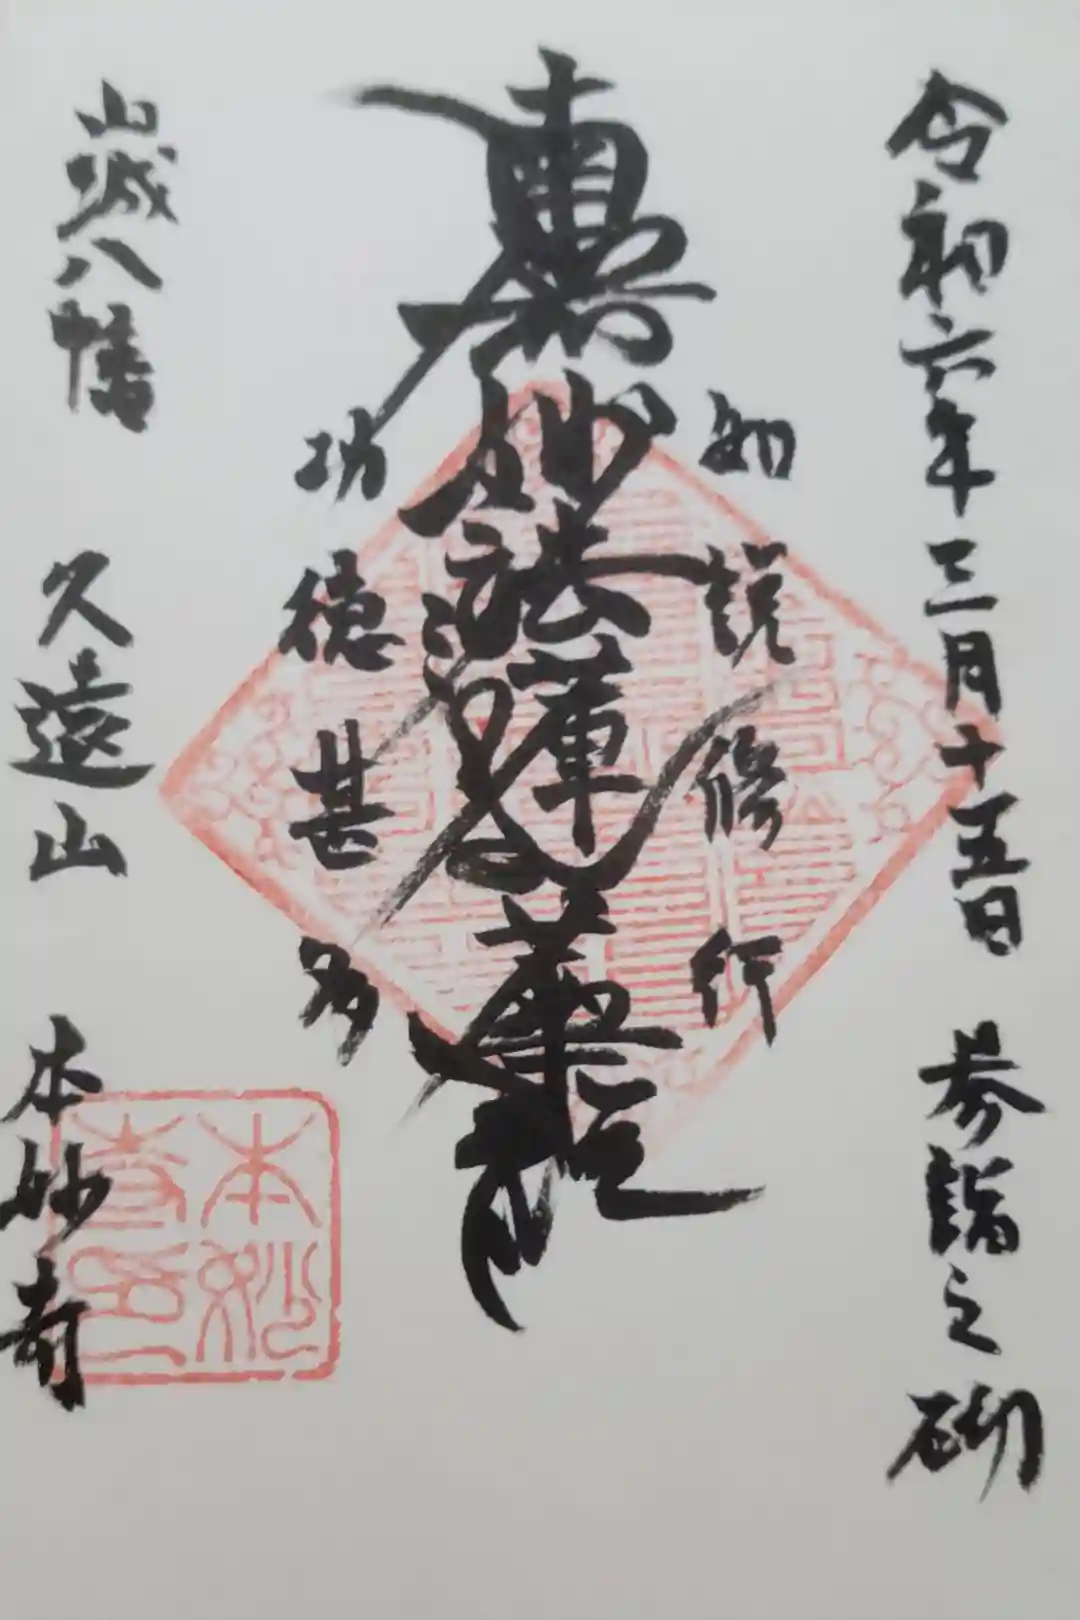 令和六年三月十五日 参詣之砌
如説修行
南無妙法蓮華経
功徳甚多
山城八幡 久遠山 本妙寺
本妙寺印